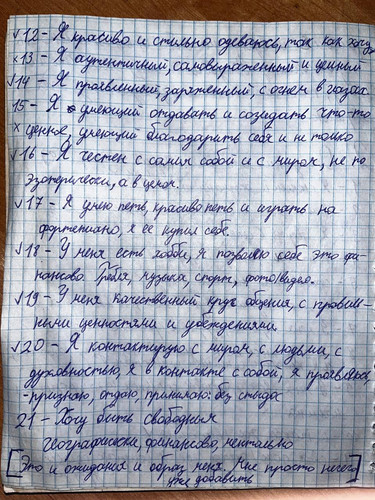 √12 - Я красиво и стильно одеваюсь, так как хочу
х13 - Я аутентичный, самовыраженный и ценный
√14 - Я проявленный, заряженный, с огнём в глазах.
15 - Я умеющий отдавать и созидать что-то
х ценное, умеющий благодарить себя и не только
√16 - Я честен с самим собой и с миром, не по
эзотерически, а в целом.
√17 - Я умею петь, красиво петь и играть на
фортепиано, я её купил себе.
√18 - У меня есть хобби, я позволяю себе это фи-
нансово. Гребля, музыка, спорт, фото/видео.
√19 - У меня качественный круг общения, с правиль-
ными ценностями и убеждениями.
√20 - Я контактирую с миром, с людьми, с
духовностью, я в контакте с собой, я проявляюсь,
- признаю, отдаю, принимаю: без стыда
21 - Хочу быть свободным
географически, финансово, ментально
[Это и ожидания и образ меня. Мне просто нечего
уже добавить